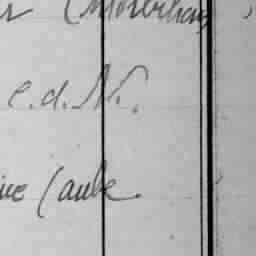 (Morbihan
C.d.N.
(Aube